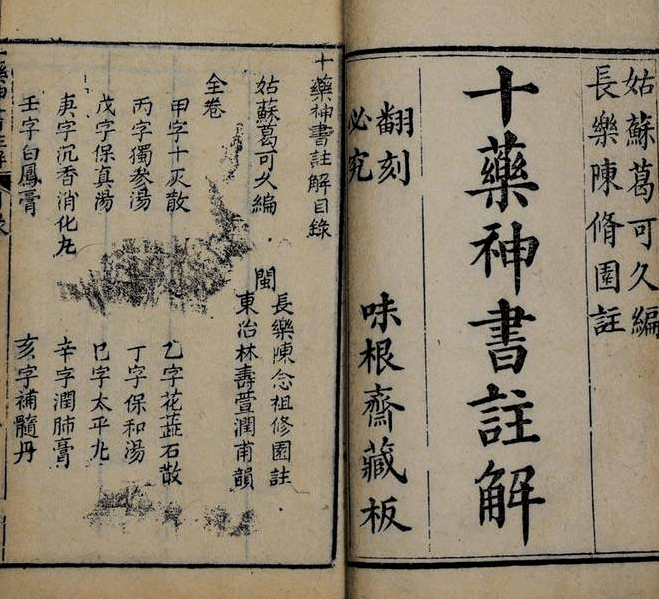 姑蘇葛可久編
長樂陳脩園註
十藥神書註解
翻刻
必究
味根齋藏板
十藥神書註解目錄
姑蘇葛可久編
閩
長樂陳念祖修園註
東冶林壽萱潤甫韻
全卷
甲字十灰散
乙字花蕋石散
丙字獨參湯
丁字保和湯
戊字保真湯
巳字太平丸
庚字沉香消化丸
辛字潤肺膏
壬字白鳳膏
亥字補髓丹